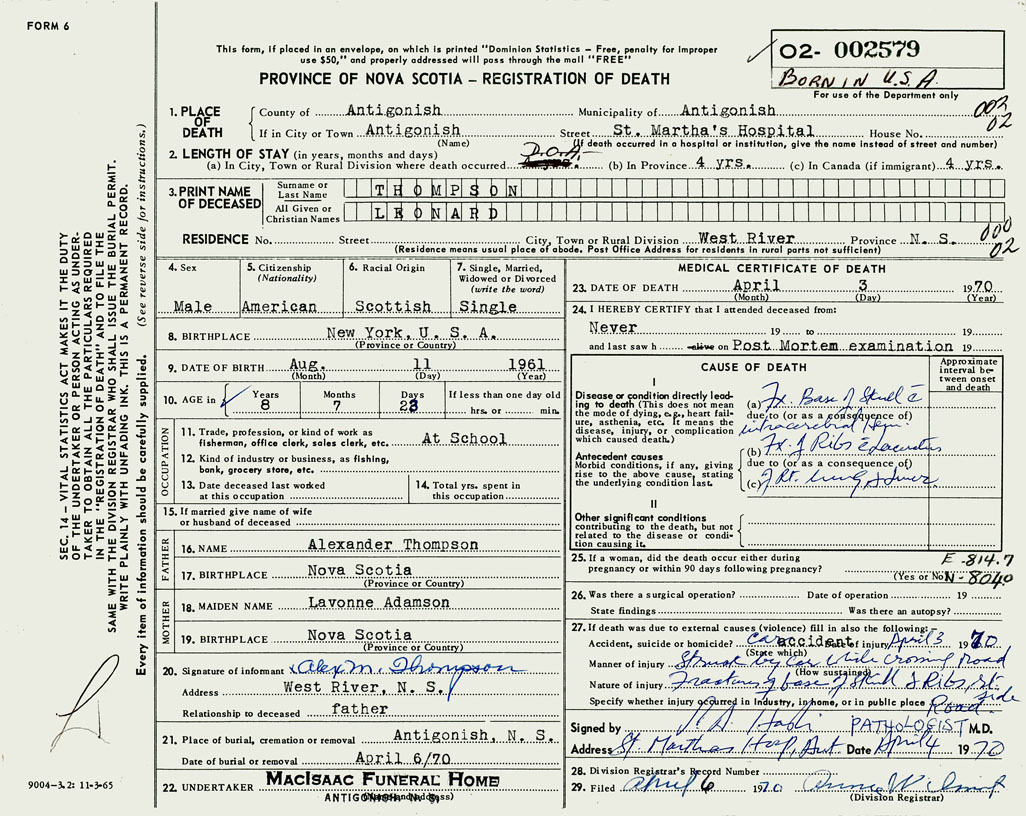 FORM 6
This form, if placed in an envelope, on which is printed "Dominion Statistics — Free, penalty for improper
use $50," and properly addressed will pass through the mail "FREE"
PROVINCE OF NOVA SCOTIA — REGISTRATION OF DEATH
02- 002579
BORN IN U.S.A.
For use of the Department only
1. PLACE OF DEATH
County of Antigonish Municipality of Antigonish 002 02
If in City or Town Antigonish Street St. Martha's Hospital House No.
(Name) (If death occurred in a hospital or institution, give the name instead of street and number)
2. LENGTH OF STAY (in years, months and days)
(a) In City, Town or Rural Division where death occurred D.O.A. (b) In Province 4 yrs. (c) In Canada (if immigrant) 4 yrs.
3. PRINT NAME OF DECEASED
Surname or Last Name THOMPSON
All Given or Christian Names LEONARD
RESIDENCE No. Street City, Town or Rural Division West River Province N. S. 000 02
(Residence means usual place of abode. Post Office Address for residents in rural parts not sufficient)
4. Sex 5. Citizenship (Nationality) 6. Racial Origin 7. Single, Married, Widowed or Divorced (write the word)
Male American Scottish Single
8. BIRTHPLACE New York, U. S. A.
(Province or Country)
9. DATE OF BIRTH Aug. 11 1961
(Month) (Day) (Year)
10. AGE in Years Months Days If less than one day old
8 7 23 hrs. or min.
OCCUPATION
11. Trade, profession, or kind of work as fisherman, office clerk, sales clerk, etc. At School
12. Kind of industry or business, as fishing, bank, grocery store, etc.
13. Date deceased last worked at this occupation
14. Total yrs. spent in this occupation
15. If married give name of wife or husband of deceased
FATHER
16. NAME Alexander Thompson
17. BIRTHPLACE Nova Scotia
(Province or Country)
MOTHER
18. MAIDEN NAME Lavonne Adamson
19. BIRTHPLACE Nova Scotia
(Province or Country)
20. Signature of informant x Alex M. Thompson
Address West River, N. S.
Relationship to deceased father
21. Place of burial, cremation or removal Antigonish, N. S.
Date of burial or removal April 6/70
22. UNDERTAKER MACISAAC FUNERAL HOME
ANTIGONISH, N. S.
MEDICAL CERTIFICATE OF DEATH
23. DATE OF DEATH April 3 1970
(Month) (Day) (Year)
24. I HEREBY CERTIFY that I attended deceased from:
Never 19 to 19
and last saw h alive on Post Mortem examination 19
CAUSE OF DEATH
Approximate interval between onset and death
I
Disease or condition directly leading to death (This does not mean the mode of dying, e.g., heart failure, asthenia, etc. It means the disease, injury, or complication which caused death.)
(a) Fx. Base of Skull c̄
due to (or as a consequence of)
intracerebral Hem.
Antecedent causes
Morbid conditions, if any, giving rise to the above cause, stating the underlying condition last.
(b) Fx. of Ribs c̄
due to (or as a consequence of)
(c) of Rt. lung
II
Other significant conditions
contributing to the death, but not related to the disease or condition causing it.
25. If a woman, did the death occur either during pregnancy or within 90 days following pregnancy?
(Yes or No)
E-814.7
N-8040
26. Was there a surgical operation? Date of operation 19
State findings Was there an autopsy?
27. If death was due to external causes (violence) fill in also the following:—
Accident, suicide or homicide? Car accident Date of injury April 3 1970
(State which)
Manner of injury Struck by Car while crossing Road
(How sustained)
Nature of injury Fracture of base of Skull & Ribs, rt. side
Specify whether injury occurred in industry, in home, or in public place Road
Signed by PATHOLOGIST M.D.
Address St. Marthas Hosp, Ant Date April 4 1970
28. Division Registrar's Record Number
29. Filed April 6 1970
(Division Registrar)
SEC. 14 — VITAL STATISTICS ACT MAKES IT THE DUTY
OF THE UNDERTAKER OR PERSON ACTING AS UNDER-
TAKER TO OBTAIN ALL THE PARTICULARS REQUIRED
IN THE "REGISTRATION OF DEATH" AND TO FILE THE
SAME WITH THE DIVISION REGISTRAR WHO SHALL ISSUE THE BURIAL PERMIT.
WRITE PLAINLY WITH UNFADING INK. THIS IS A PERMANENT RECORD.
Every item of information should be carefully supplied. (See reverse side for instructions.)
9004-3.2: 11-3-65